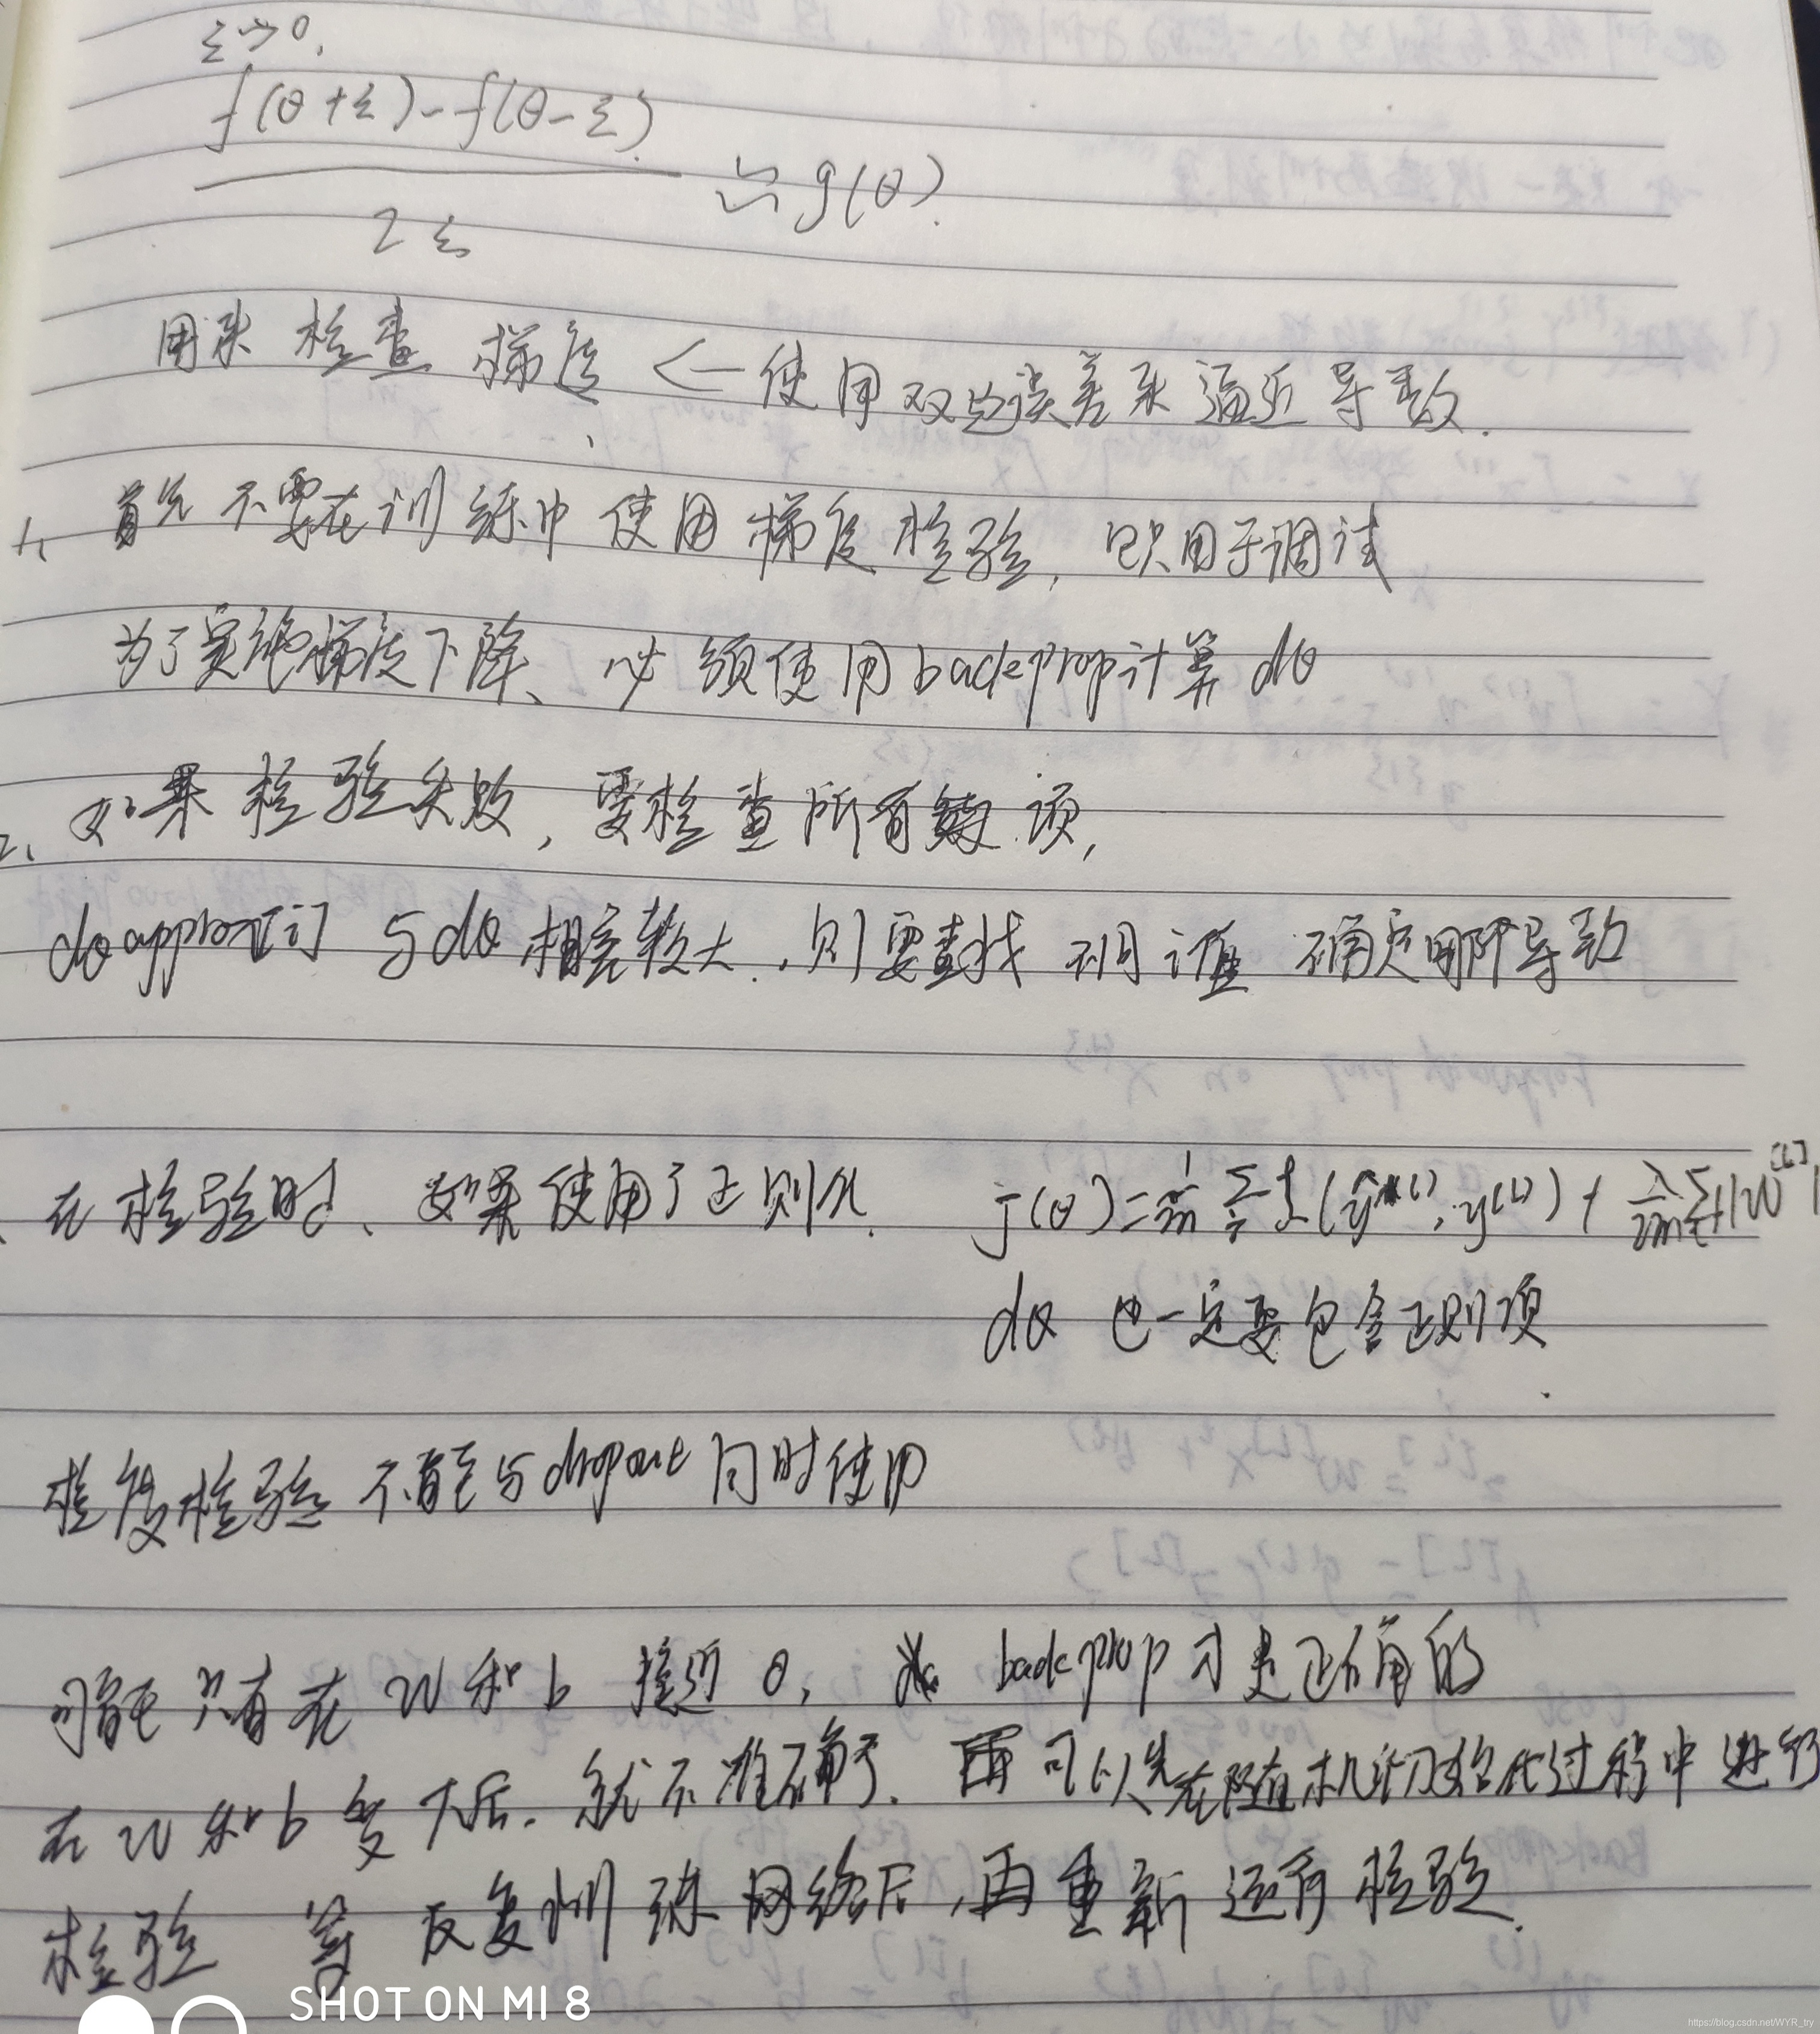 ε→0.
f(θ+ε)-f(θ-ε)
2ε
≈ g(θ).
用来 检查 梯度 ← 使用双边误差来逼近导数.
1、首先 不要在训练中 使用 梯度检验, 只用于调试
为了实施梯度下降、必须使用backprop计算dθ
2、如果检验失败, 要检查所有 项,
dθapprox[i] 与dθ相差较大, 则要查找 不同i值 确定哪个导致
在检验时、如果使用了正则化. J(θ)=1/m Σ L(ŷ(i), y(i)) + λ/2m Σ||W[l]|
dθ 也一定要包含正则项
梯度检验 不能与dropout同时使用
可能只有在 w 和 b 接近 0, backprop才是正确的
在 w 和 b 变大后. 就不准确了. 可以先在随机初始化过程中 进行
检验 等 反复训练网络后, 再重新运行检验.
SHOT ON MI 8
https://blog.csdn.net/WYR_try